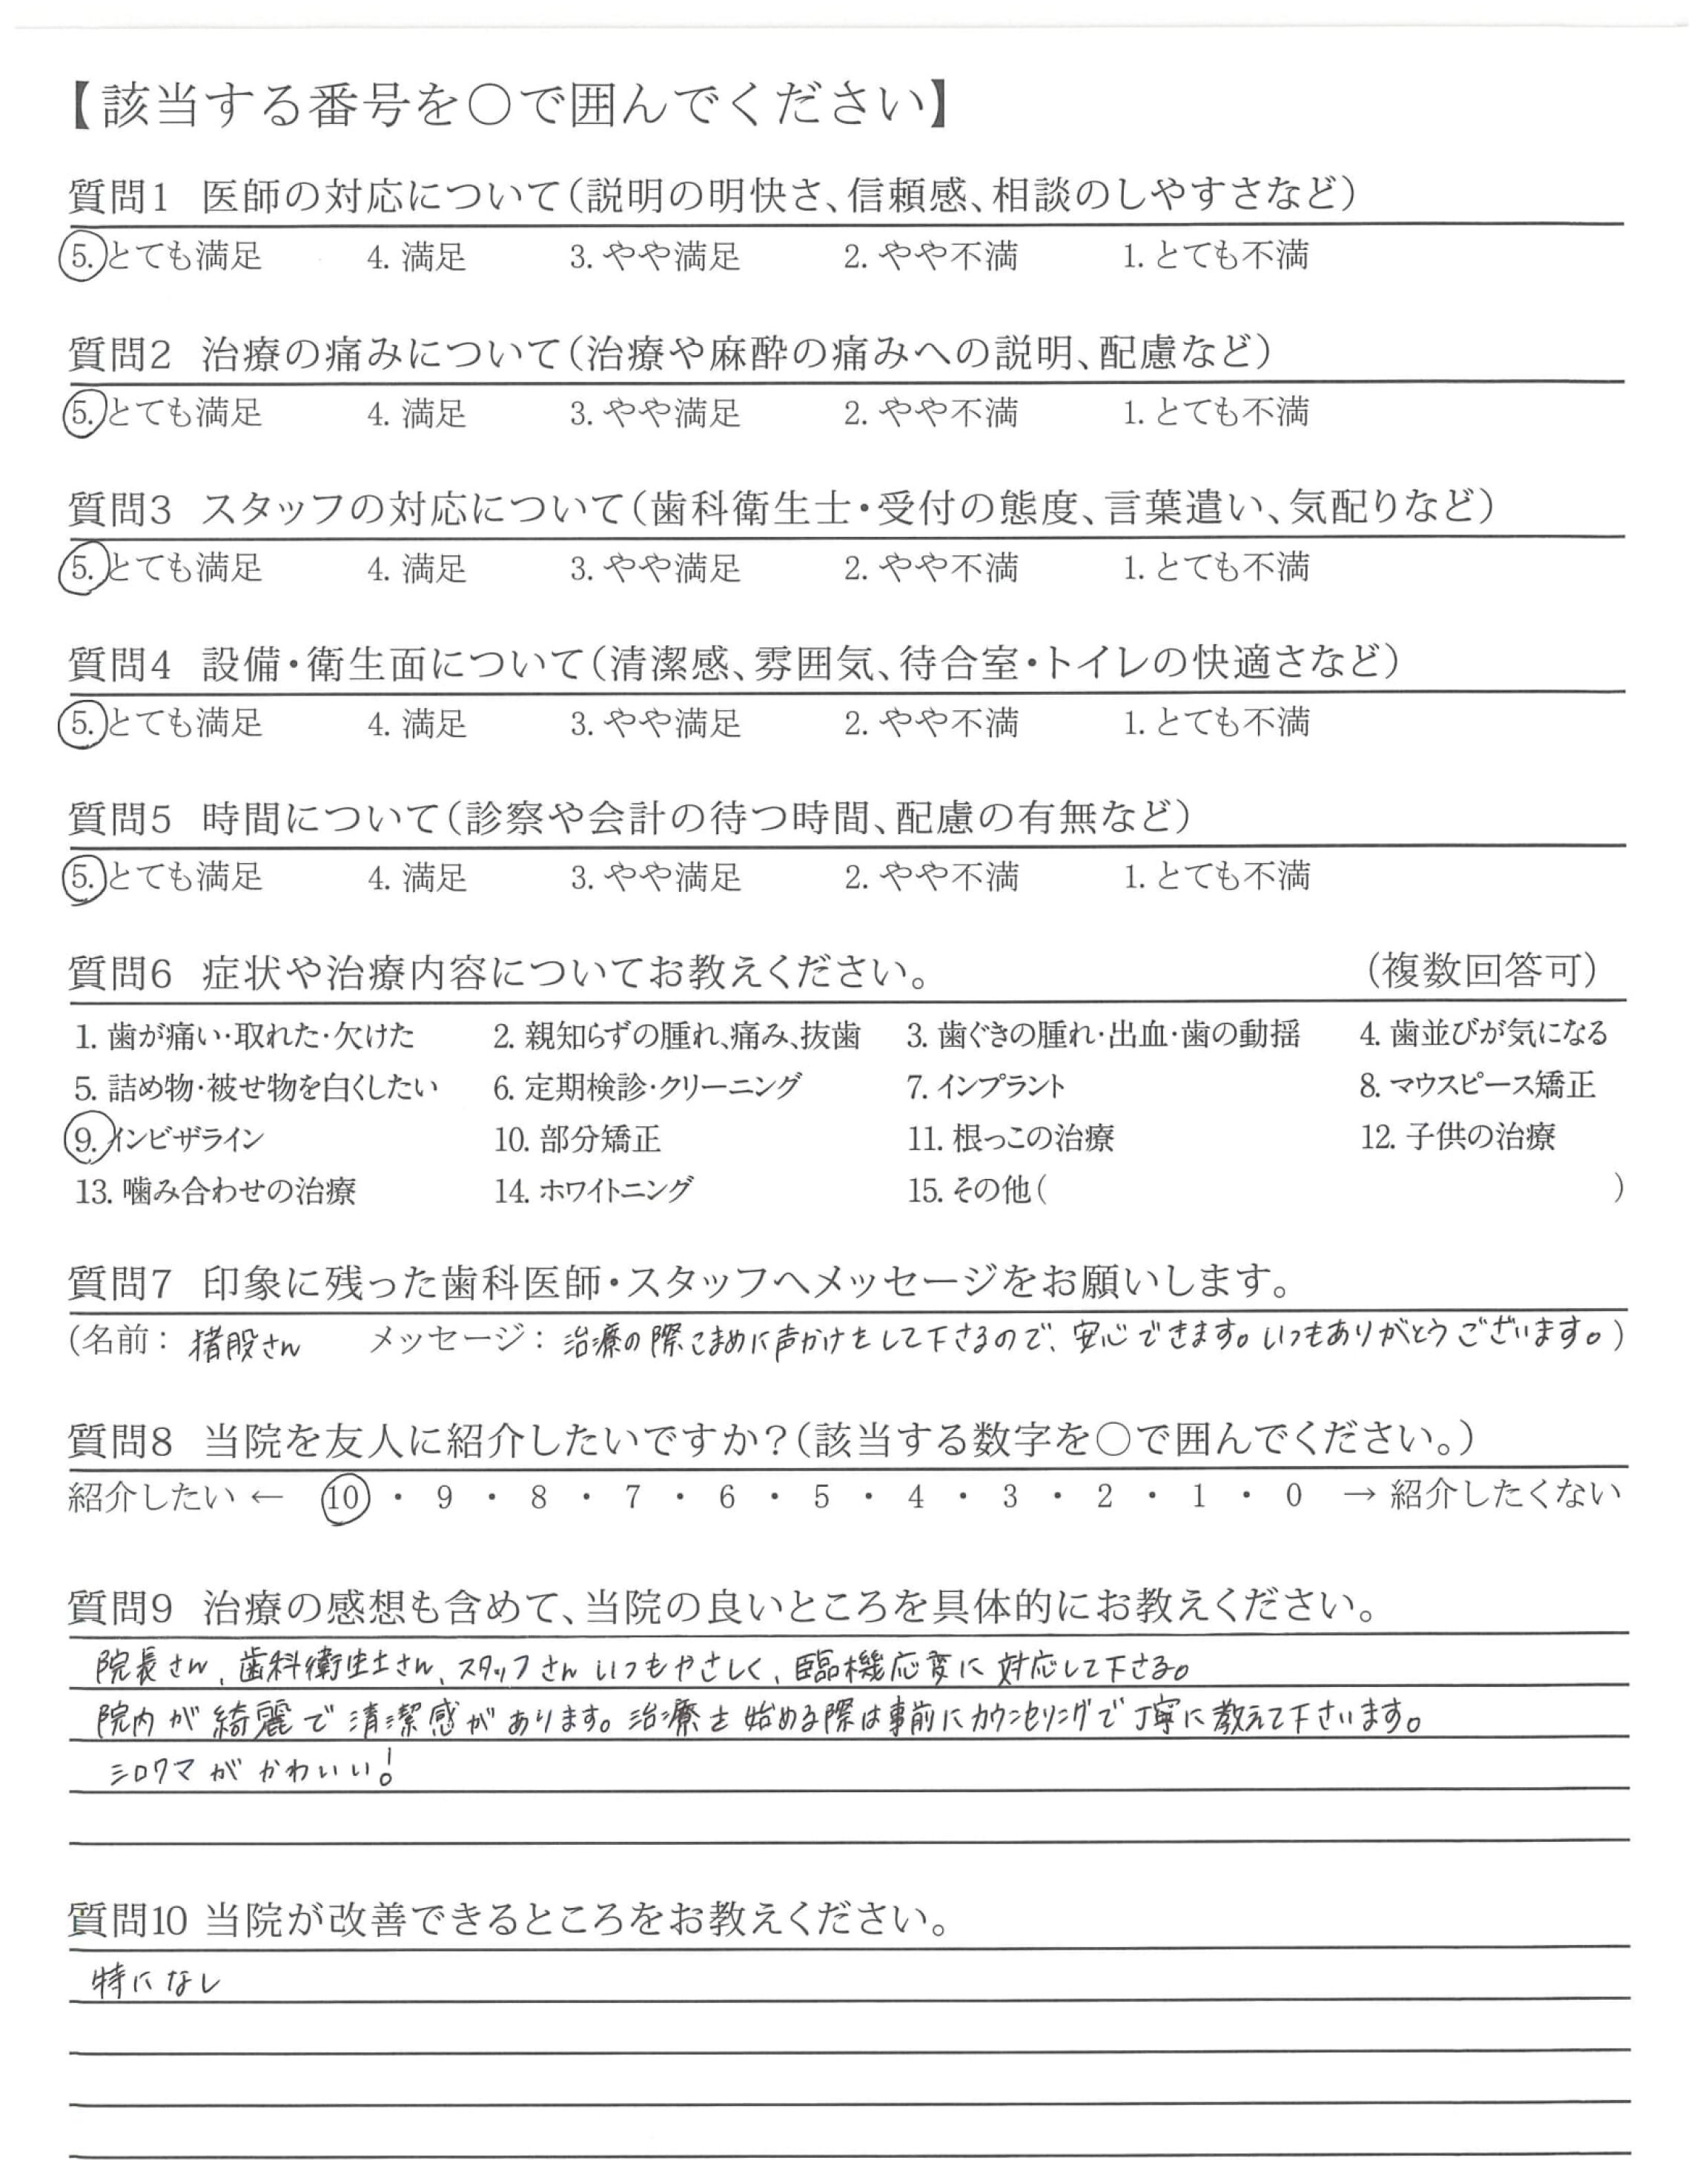 【該当する番号を○で囲んでください】
質問1 医師の対応について(説明の明快さ、信頼感、相談のしやすさなど)
5. とても満足 4. 満足 3. やや満足 2. やや不満 1. とても不満
質問2 治療の痛みについて(治療や麻酔の痛みへの説明、配慮など)
5. とても満足 4. 満足 3. やや満足 2. やや不満 1. とても不満
質問3 スタッフの対応について(歯科衛生士・受付の態度、言葉遣い、気配りなど)
5. とても満足 4. 満足 3. やや満足 2. やや不満 1. とても不満
質問4 設備・衛生面について(清潔感、雰囲気、待合室・トイレの快適さなど)
5. とても満足 4. 満足 3. やや満足 2. やや不満 1. とても不満
質問5 時間について(診察や会計の待つ時間、配慮の有無など)
5. とても満足 4. 満足 3. やや満足 2. やや不満 1. とても不満
質問6 症状や治療内容についてお教えください。 (複数回答可)
1. 歯が痛い・取れた・欠けた 2. 親知らずの腫れ、痛み、抜歯 3. 歯ぐきの腫れ・出血・歯の動揺 4. 歯並びが気になる
5. 詰め物・被せ物を白くしたい 6. 定期検診・クリーニング 7. インプラント 8. マウスピース矯正
9. インビザライン 10. 部分矯正 11. 根っこの治療 12. 子供の治療
13. 噛み合わせの治療 14. ホワイトニング 15. その他( )
質問7 印象に残った歯科医師・スタッフへメッセージをお願いします。
(名前: 猪股さん メッセージ: 治療の際こまめに声かけをして下さるので、安心できます。いつもありがとうございます。)
質問8 当院を友人に紹介したいですか?(該当する数字を○で囲んでください。)
紹介したい ← 10 ・ 9 ・ 8 ・ 7 ・ 6 ・ 5 ・ 4 ・ 3 ・ 2 ・ 1 ・ 0 → 紹介したくない
質問9 治療の感想も含めて、当院の良いところを具体的にお教えください。
院長さん、歯科衛生士さん、スタッフさんいつもやさしく、臨機応変に対応して下さる。
院内が綺麗で清潔感があります。治療を始める際は事前にカウンセリングで丁寧に教えて下さいます。
シロクマがかわいい!
質問10 当院が改善できるところをお教えください。
特になし